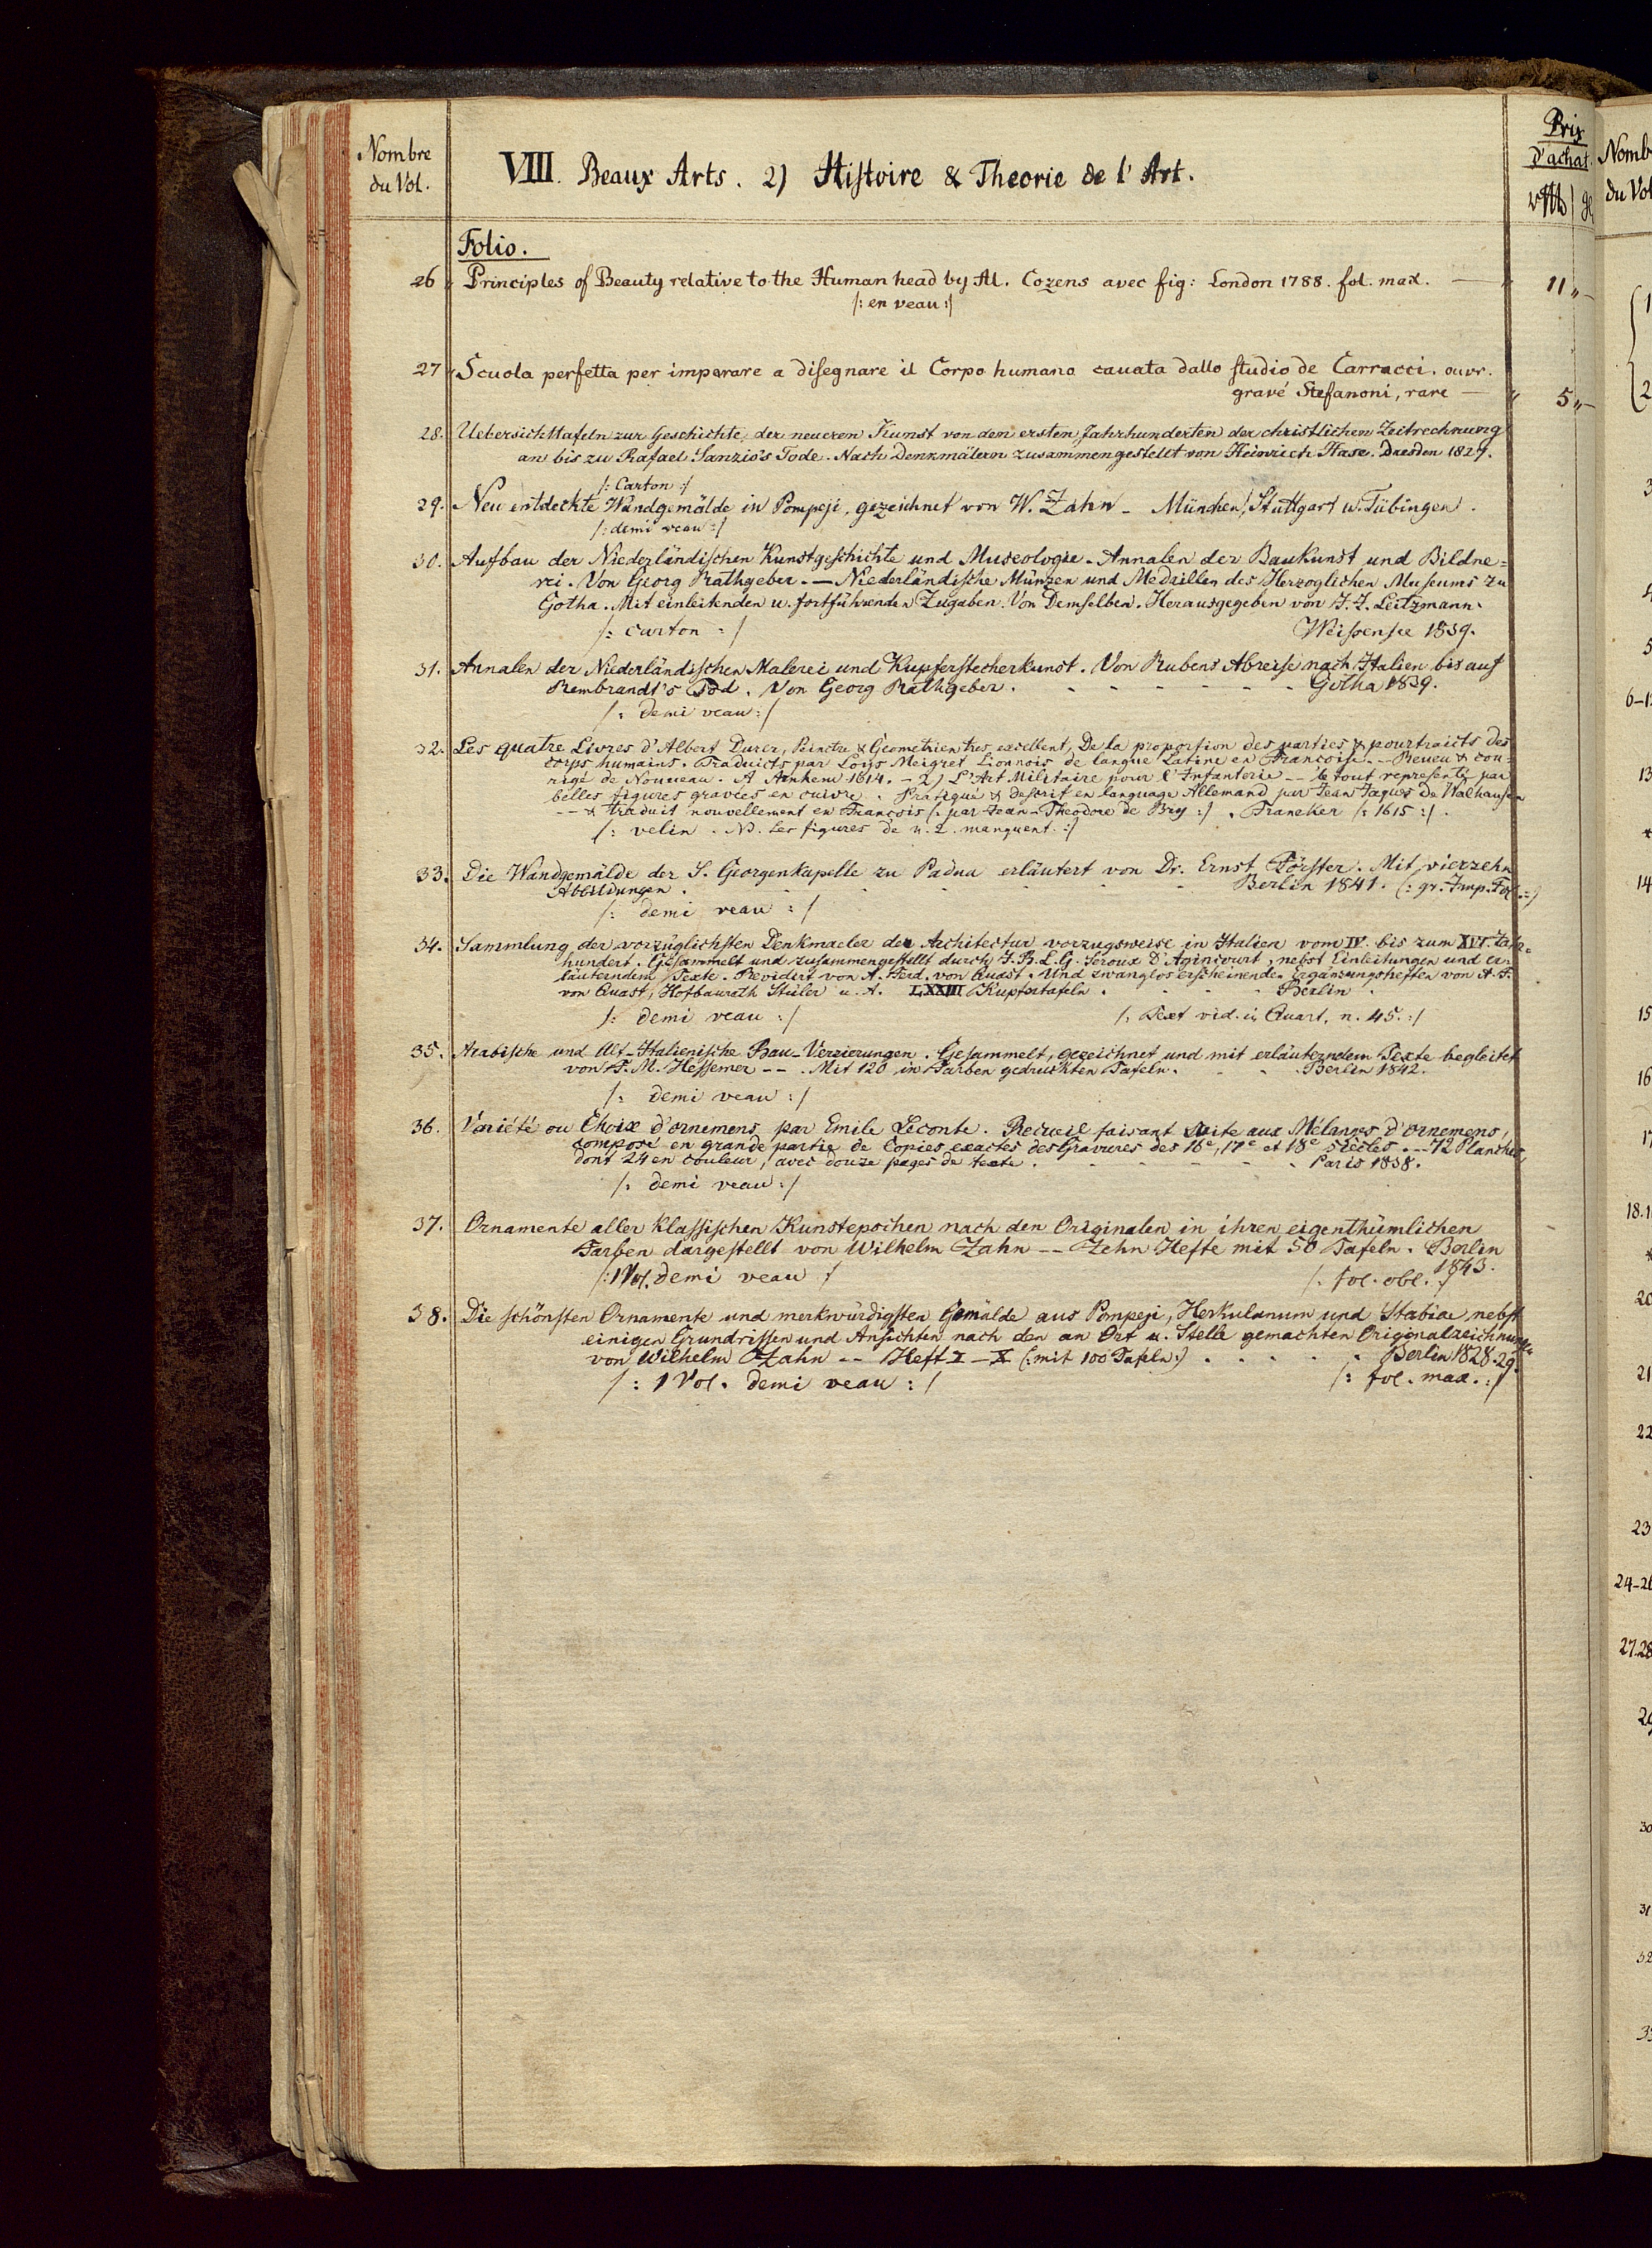 Nombre
du Vol.
VIII. Beaux Arts. 2) Histoire & Theorie de l'Art.
Prix
d'achat.
Folio.
26 Principles of Beauty relative to the Human head by Al. Cozens avec fig: London 1788. fol. max. — 11 „ –
/: en veau :/
27 Scuola perfetta per imparare a disegnare il Corpo humano cauata dallo studio de Carracci. ouvr.
gravé Stefanoni, rare — „ 5 „ –
28. Uebersichttafeln zur Geschichte der neueren Kunst von den ersten Jahrhunderten der christlichen Zeitrechnung
an bis zu Rafael Sanzio's Tode. Nach Denkmälern zusammengestellt von Heinrich Hase. Dresden 1827.
/: Carton :/
29. Neu entdeckte Wandgemälde in Pompeji, gezeichnet von W. Zahn – München, Stuttgart u. Tübingen.
/: demi veau :/
30. Aufbau der Niederländischen Kunstgeschichte und Museologie. Annalen der Baukunst und Bildne=
rei. Von Georg Rathgeber. — Niederländische Münzen und Medaillen des Herzoglichen Museums zu
Gotha. Mit einleitenden u. fortführenden Zugaben. Von Demselben. Herausgegeben von J. J. Leitzmann.
/: carton :/ Weissensee 1839.
31. Annalen der Niederländischen Malerei und Kupferstecherkunst. Von Rubens Abreise nach Italien bis auf
Rembrandt's Tod. Von Georg Rathgeber. Gotha 1839.
/: demi veau :/
32. Les quatre Livres d'Albert Durer, Peinctre & Geometrien tres excellent, De la proportion des parties & pourtraicts des
corps humains. Traduicts par Loys Meigret Lionnois de langue Latine en Francoise. -- Reueu & cor=
rigé de Nouueau. A Arnhem 1614. – 2) L'Art Militaire pour l'Infanterie -- le tout representé par
belles figures gravées en cuivre. Pratiqué & descrit en language Allemand par Jean Jaques De Walhausen
-- & traduit nouvellement en François (: par Jean-Theodore de Bry :/. Franeker /: 1615 :/.
/: velin. NB. les figures de n. 2. manquent. :/
33. Die Wandgemälde der S. Georgenkapelle zu Padua erläutert von Dr. Ernst Förster. Mit vierzehn
Abbildungen. Berlin 1841. (: gr. Imp. Fol. :)
/: demi veau :/
34. Sammlung der vorzüglichsten Denkmaeler der Architectur vorzugsweise in Italien vom IV. bis zum XVI. Jahr=
hundert. Gesammelt und zusammengestellt durch J. B. L. G. Seroux d'Agincourt, nebst Einleitungen und er=
läuterndem Texte. Revidirt von A. Ferd. von Quast. Und zwanglos erscheinenden Ergänzungsheften von A. F.
von Quast, Hofbaurath Stüler u. A. LXXIII Kupfertafeln. Berlin.
/: demi veau :/ /: Text vid. in Quart, n. 45. :/
35. Arabische und Alt-Italienische Bau-Verzierungen. Gesammelt, gezeichnet und mit erläuterndem Texte begleitet
von F. M. Hessemer --. Mit 120 in Farben gedruckten Tafeln. Berlin 1842.
/: demi veau :/
36. Variété ou Choix d'ornemens par Emile Leconte. Recueil faisant suite aux Mélanges d'ornemens,
composé en grande partie de Copies exactes des Gravures des 16e, 17e et 18e siècles. -- 72 Planches
dont 24 en couleur, avec douze pages de texte. Paris 1838.
/: demi veau :/
37. Ornamente aller klassischen Kunstepochen nach den Originalen in ihren eigenthümlichen
Farben dargestellt von Wilhelm Zahn -- Zehn Hefte mit 50 Tafeln. Berlin
1843.
/: 1 Vol. demi veau :/ /: fol. obl. :/
38. Die schönsten Ornamente und merkwürdigsten Gemälde aus Pompeji, Herkulanum und Stabiae nebst
einigen Grundrissen und Ansichten nach den an Ort u. Stelle gemachten Originalzeichnungen
von Wilhelm Zahn -- Heft I – X (: mit 100 Tafeln :) Berlin 1828-29.
/: 1 Vol. demi veau :/ /: fol. max. :/